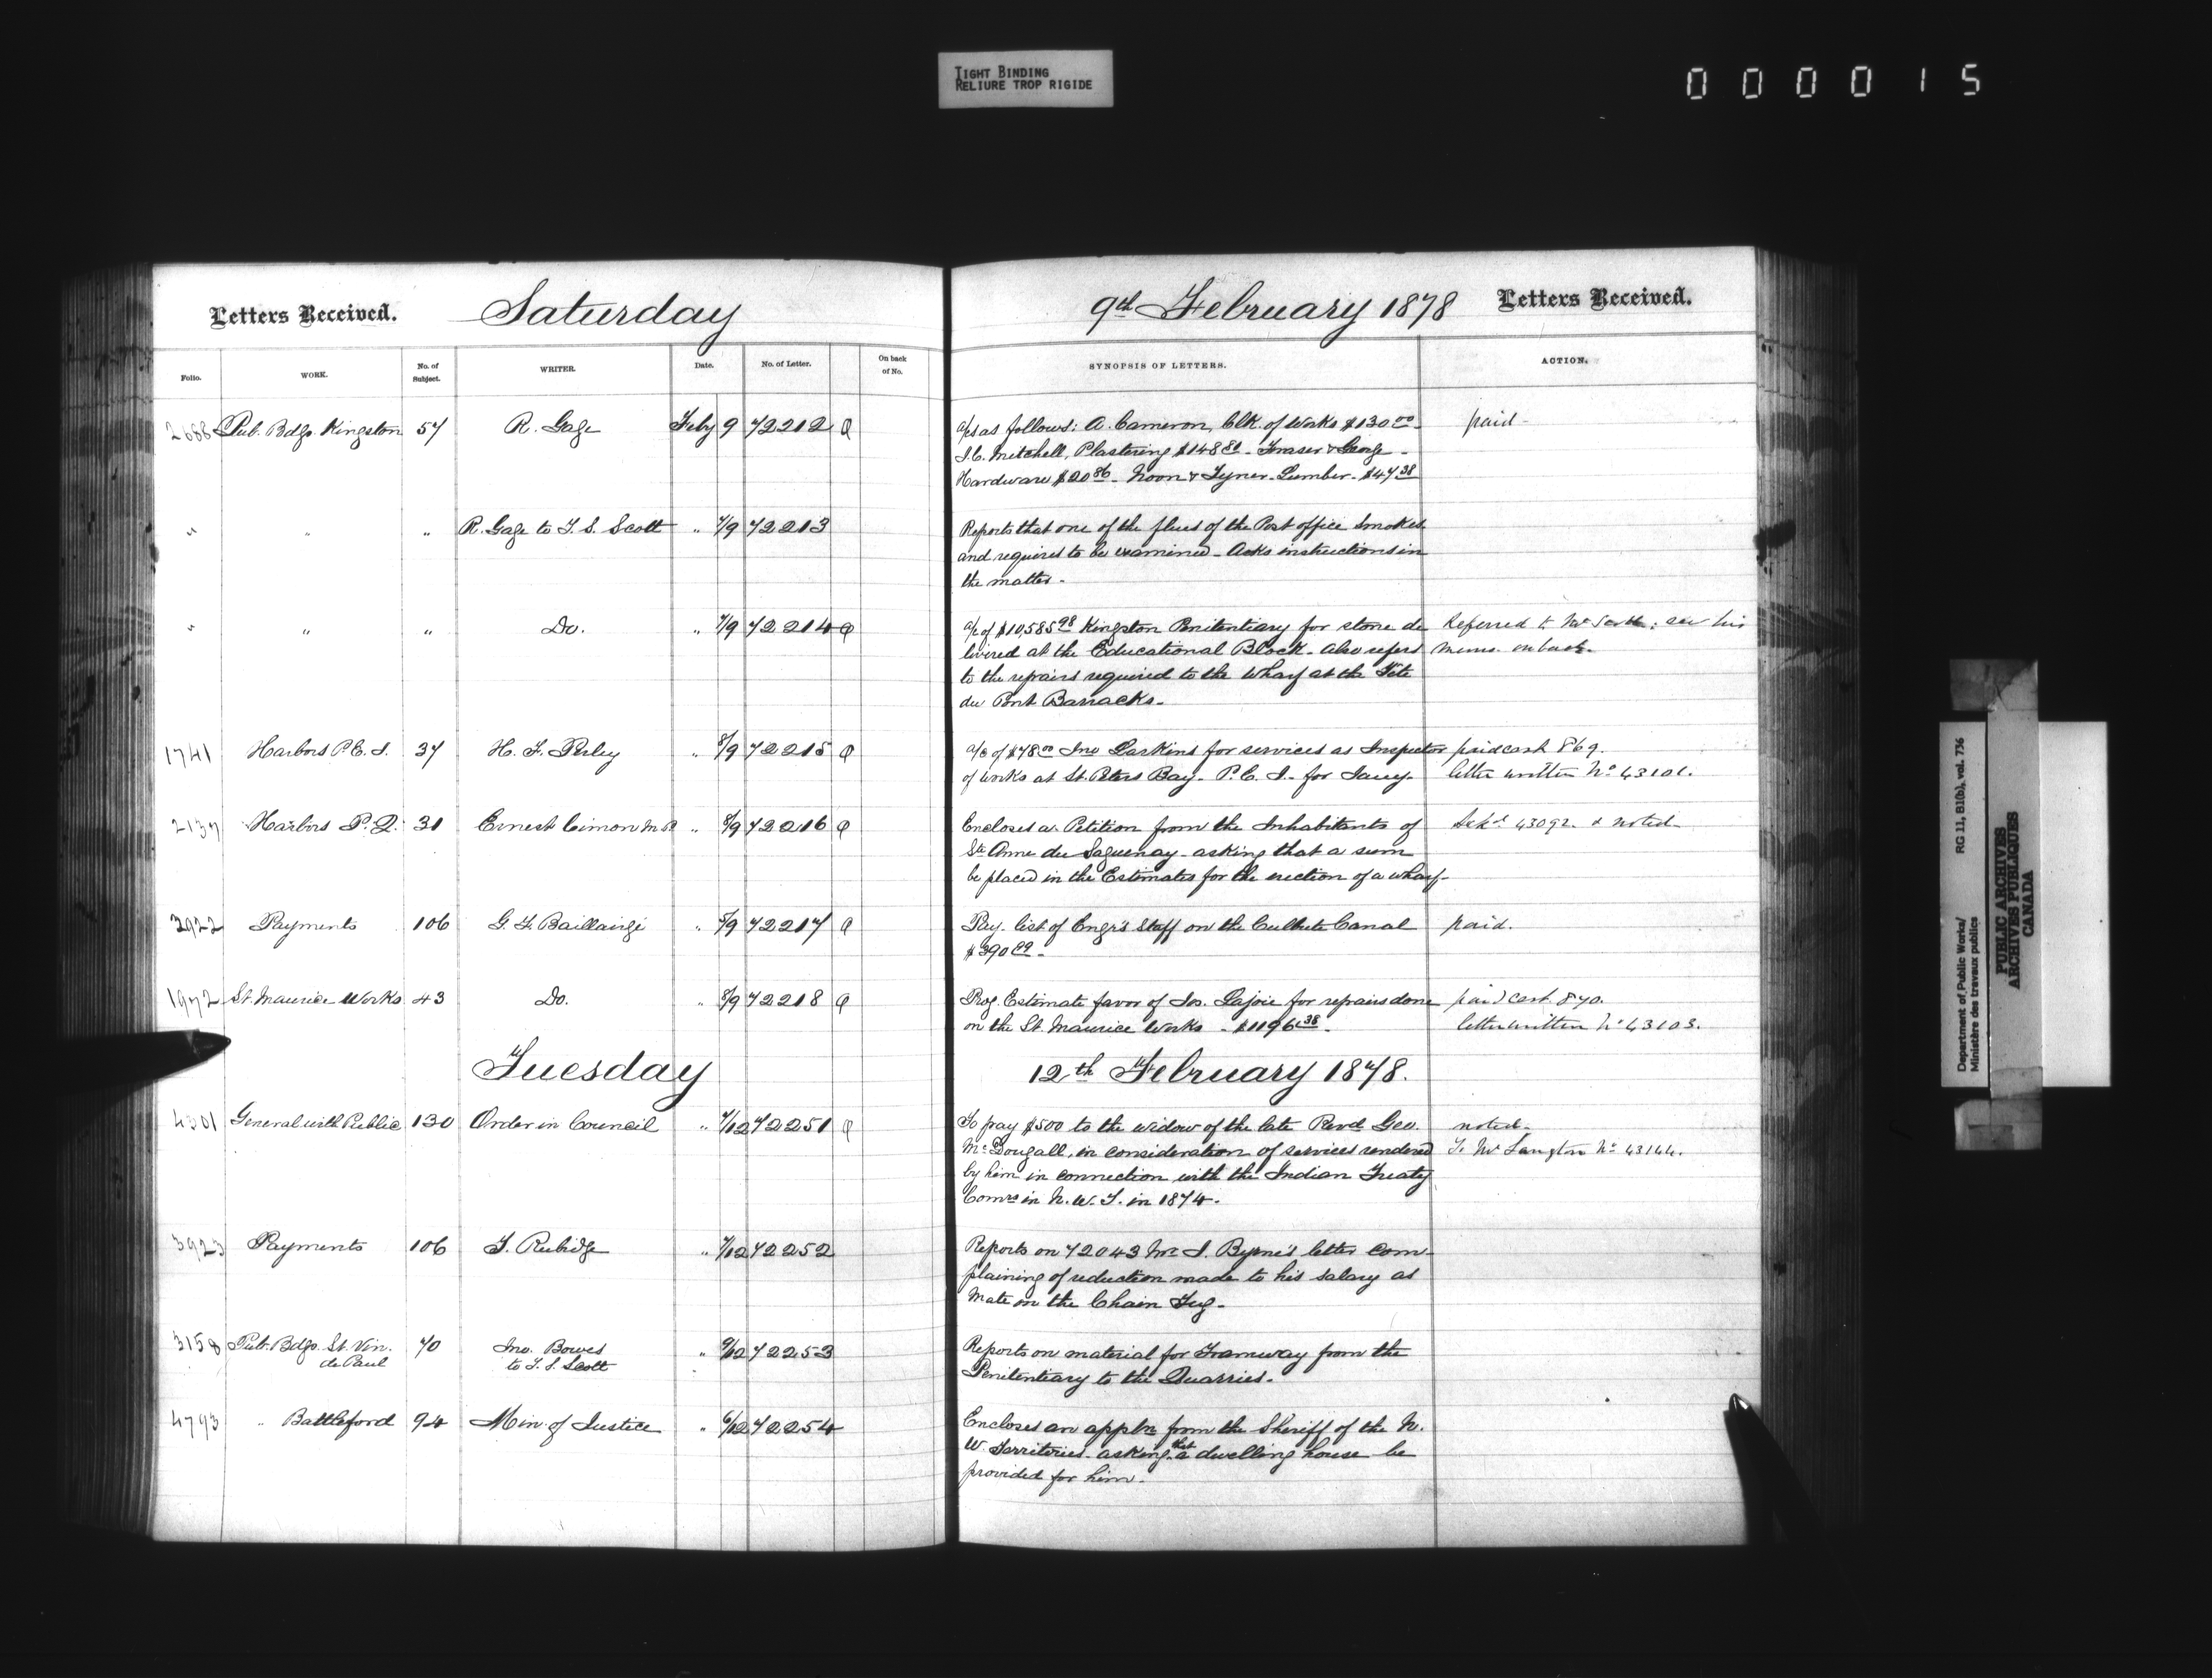 TIGHT BINDING
RELIURE TROP RIGIDE
000015
Letters Received. Saturday 9th February 1878 Letters Received.
Folio. WORK. No. of Subject. WRITER. Date. No. of Letter. On back of No. SYNOPSIS OF LETTERS. ACTION.
2688 Pub. Bdgs. Kingston 57 R. Gage Feby 9 72212 Q a/cs as follows: A. Cameron, Clk. of Works $130.00 paid-
J.C. Mitchell, Plastering $148 80 - Fraser & George -
Hardware $20 86 - Noon & Tyner - Lumber - $47 38
" " " R. Gage to T. S. Scott " 7/9 72213 Reports that one of the flues of the Post office smokes
and requires to be examined - Asks instructions in
the matter -
" " " Do. " 7/9 72214 Q a/c of $10,585 98 Kingston Penitentiary for stone de Referred to Mr Scott; see his
livered at the Educational Block - Also refers memo. on back.
to the repairs required to the Wharf at the Tete
du Pont Barracks -
1741 Harbors P.E.I. 37 H. F. Perley " 8/9 72215 Q a/c of $78 00 Jno Larkins for services as Inspector paid cash 869.
of works at St. Peters Bay - P.E.I. - for Jany. letter written No 43101.
2137 Harbors P.Q. 31 Ernest Cimon M.P. " 8/9 72216 Q Encloses a Petition from the Inhabitants of 43092 & noted-
Ste Anne du Saguenay - asking that a sum
be placed in the Estimates for the erection of a wharf -
3922 Payments 106 G. F. Baillairgé " 8/9 72217 Q Pay. list of Engr's Staff on the Culbute Canal paid.
$390 89 -
1972 St. Maurice Works 43 Do. " 8/9 72218 Q Prog. Estimate favor of Jos. Lajoie for repairs done paid cert. 870.
on the St. Maurice Works - $1196 38 - letter written No 43103.
Tuesday 12th February 1878.
4301 General with Public 130 Order in Council " 7/12 72251 Q To pay $500 to the widow of the late Revd Geo. noted-
McDougall, in consideration of services rendered To Mr Langton No 43144.
by him in connection with the Indian Treaty
Comrs in N. W. T. in 1874 -
3923 Payments 106 F. Rubidge " 7/12 72252 Reports on 72043 Mr J. Byrne's letter com-
plaining of reduction made to his salary as
mate on the Chain Tug -
3158 Pub. Bdgs. St. Vin. 70 Jno. Bowes " 9/12 72253 Reports on material for Tramway from the
de Paul to T. S. Scott Penitentiary to the Quarries -
4793 " Battleford 94 Min. of Justice " 6/12 72254 Encloses an appln from the Sheriff of the N.
W. Territories - asking that a dwelling house be
provided for him -
Department of Public Works/ RG 11, B1(b), vol. 736
Ministère des travaux publics
PUBLIC ARCHIVES
ARCHIVES PUBLIQUES
CANADA